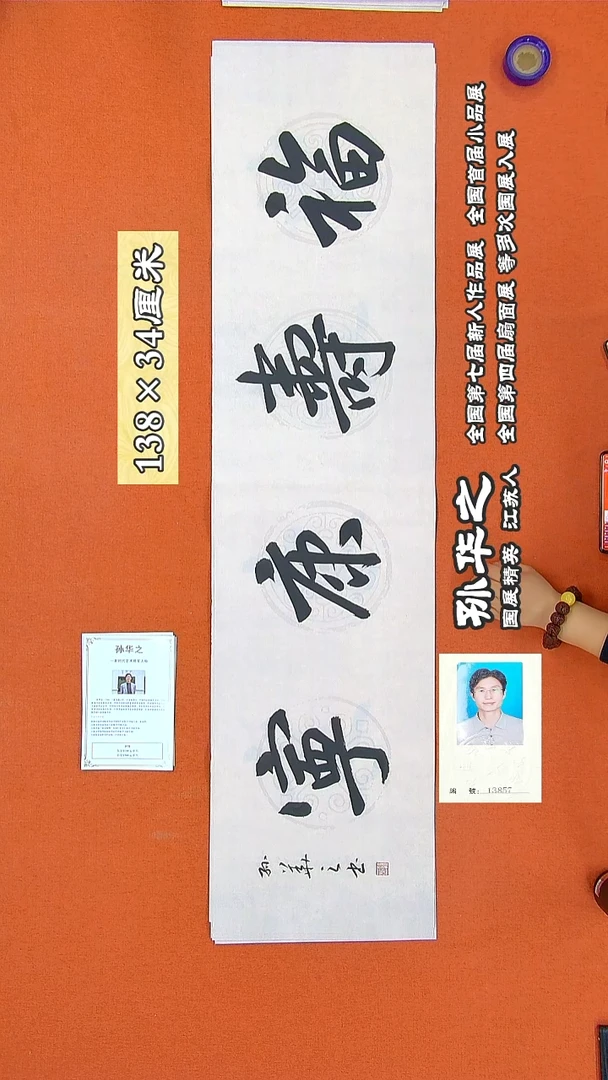 福壽康寧
孙華之书
138×34厘米
全国第七届新人作品展 全国首届小品展
全国第四届扇面展 等多次国展入展
孙华之
国展精英 江苏人
孙华之
编 号: 13857